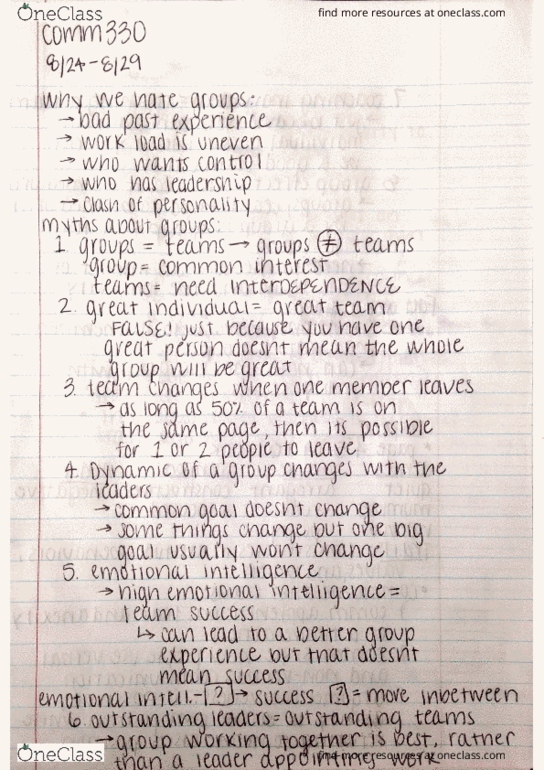 OneClass
find more resources at oneclass.com
comm 330
8/24-8/29
why we hate groups:
→ bad past experience
→ work load is uneven
→ who wants control
→ who has leadership
→ clash of personality
myths about groups:
1. groups = teams → groups ≠ teams
group = common interest
teams = need INTERDEPENDENCE
2. great individual = great team
FALSE! just because you have one
great person doesnt mean the whole
group will be great
3. team changes when one member leaves
→ as long as 50% of a team is on
the same page, then its possible
for 1 or 2 people to leave
4. Dynamic of a group changes with the
leaders
→ common goal doesnt change
→ some things change but one big
goal usually won't change
5. emotional intelligence
→ high emotional intelligence =
team success
↳ can lead to a better group
experience but that doesnt
mean success
emotional intell. - [?] → success [?] = more inbetween
6. outstanding leaders = outstanding teams
→ group working together is best, rather
than a leader appointing work
OneClass
find more resources at oneclass.com